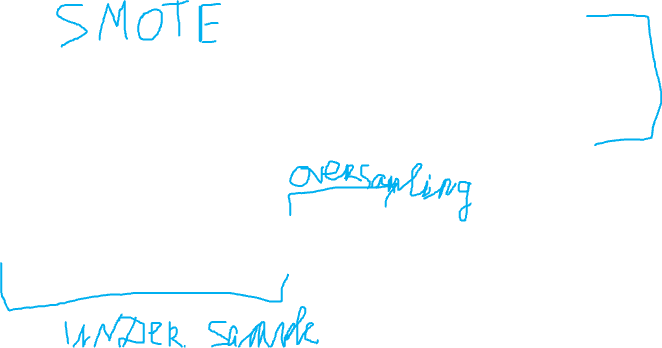 SMOTE
oversampling
UNDER sample